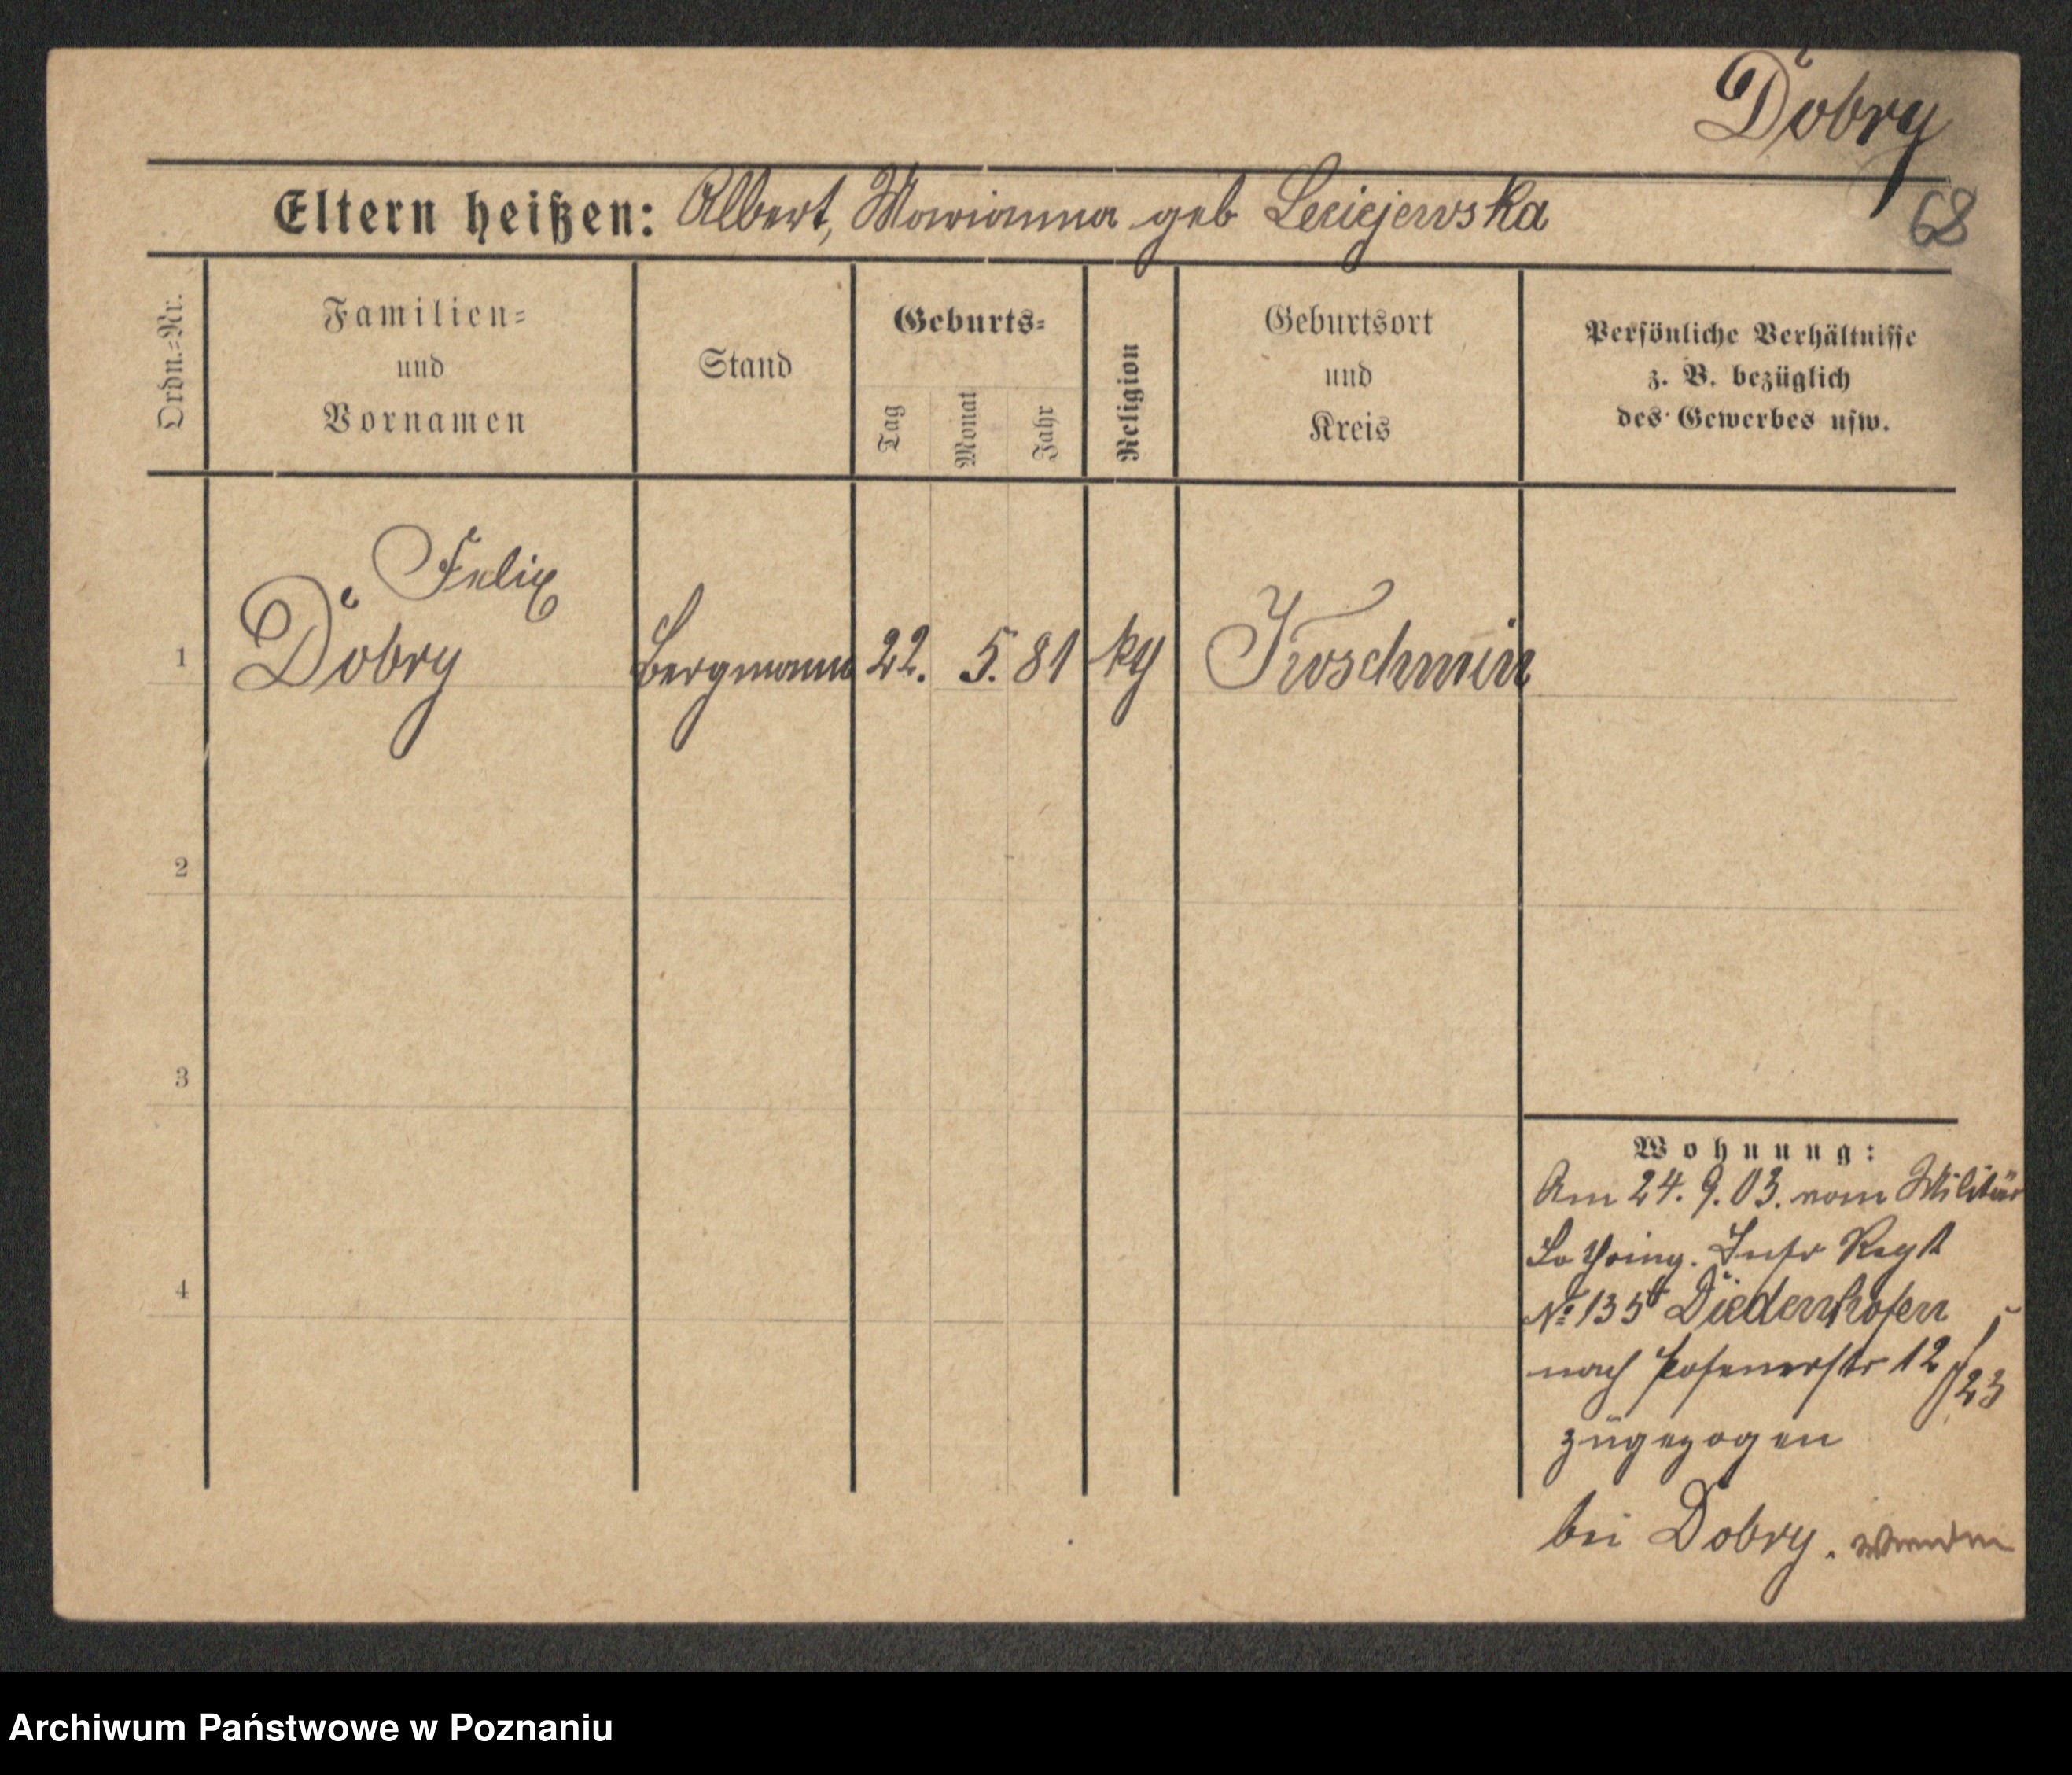 Dobry
68
Eltern heißen: Albert, Marianna geb Leciejewska
Ordn.=Nr.
Familien=
und
Vornamen
Stand
Geburts=
Tag
Monat
Jahr
Religion
Geburtsort
und
Kreis
Persönliche Verhältnisse
z. B. bezüglich
des Gewerbes usw.
Felix
1 Dobry Bergmann 22. 5. 81 kg Kroschmin
2
3
4
Wohnung:
Am 24. 9. 03. vom Militär
Lothring. Inftr Regt
No 135 Diedenhofen
nach Posenerstr 12/23
zugezogen
bei Dobry.
Archiwum Państwowe w Poznaniu